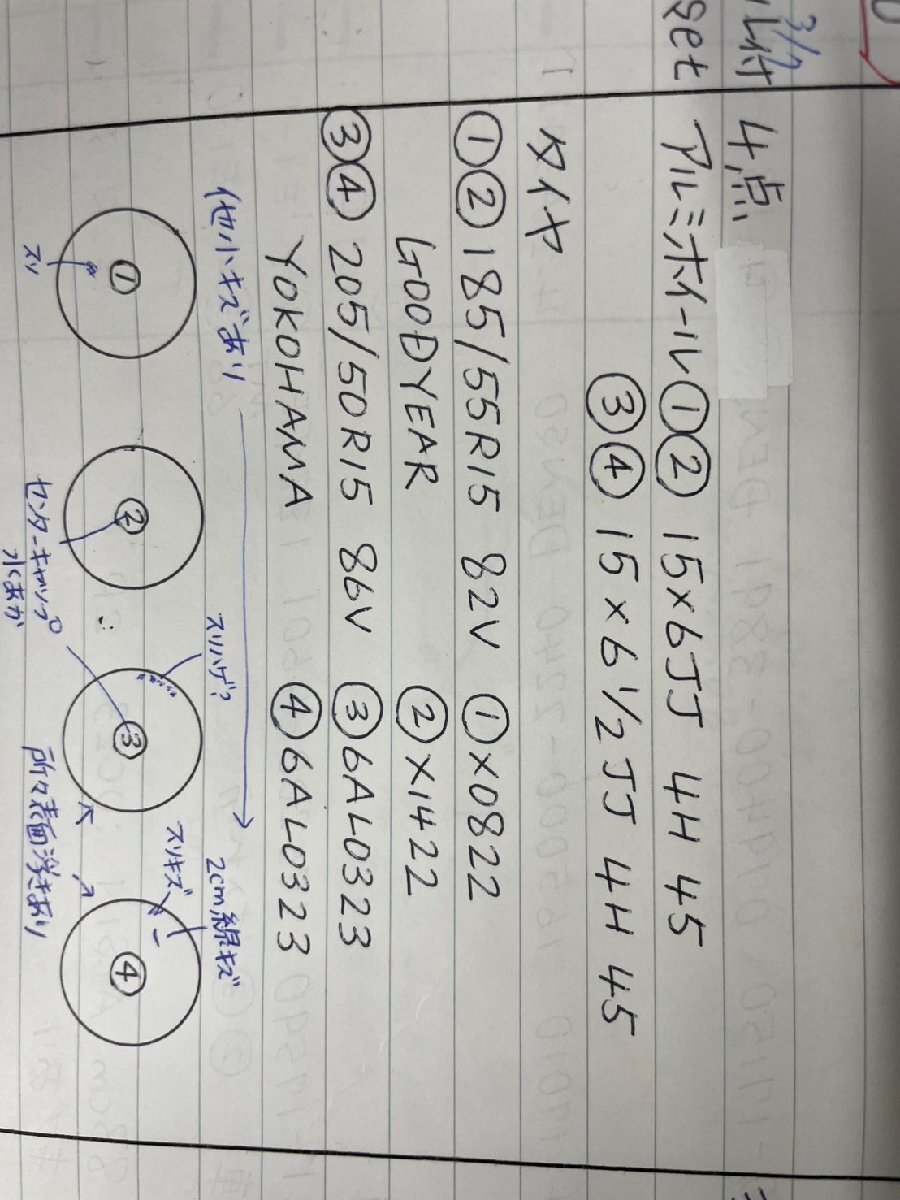 3/7
ル付 4点
set アルミホイール①② 15×6JJ 4H 45
③④ 15×6 1/2JJ 4H 45
タイヤ
①② 185/55R15 82V ①X0822
GOODYEAR ②X1422
③④ 205/50R15 86V ③6AL0323
YOKOHAMA ④6AL0323
他小キズあり
スリハゲ?
2cm線キズ
スリキズ
①
②
③
④
スリ
センターキャップ
水あか
所々表面浮きあり